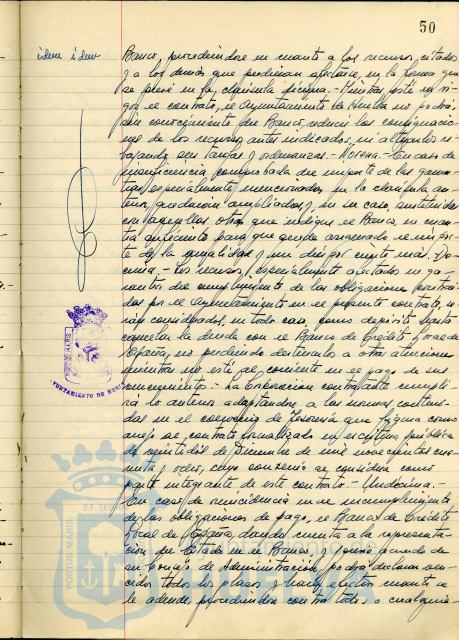 50
idem idem
Banco, procediéndose en cuanto a los recursos citados
y a los demás que pudieran afectarse, en la forma que
se prevé en la cláusula décima.- Mientras esté en vi-
gor el contrato, el Ayuntamiento de Huelva no podrá,
sin conocimiento del Banco, reducir las consignacio-
nes de los recursos antes indicados, ni alterarlos re-
bajando sus tarifas y ordenanzas.- Novena.- En caso de
insuficiencia comprobada del importe de las garan-
tías especialmente mencionadas en la cláusula an-
terior, quedarán ampliadas, y en su caso, sustituidas
con aquellas otras que indique el Banco, en cuan-
tía suficiente para que quede asegurado el impor-
te de la anualidad y un diez por ciento más. Dé-
cima.- Los recursos especialmente afectados en ga-
rantía del cumplimiento de las obligaciones contraí-
das por el Ayuntamiento en el presente contrato, se-
rán considerados, en todo caso, como depósito hasta
cancelar la deuda con el Banco de Crédito Local de
España, no pudiendo destinarlos a otras atenciones
mientras no esté al corriente en el pago de sus
vencimientos.- La Corporación contratante cumpli-
rá lo anterior adaptándose a las normas conteni-
das en el convenio de Tesorería que figura como
anejo al contrato formalizado en escritura pública
de veintidós de Diciembre de mil novecientos cin-
cuenta y ocho, cuyo convenio se considera como
parte integrante de este contrato.- Undécima.-
En caso de reincidencia en el incumplimiento
de las obligaciones de pago, el Banco de Crédito
Local de España, dando cuenta a la representa-
ción del Estado en el Banco, y previo acuerdo de
su Consejo de Administración, podrá declarar ven-
cidos todos los plazos y hacer efectivo cuanto se
le adeude, procediendo contra todos o cualquie-
PORTUS MARIS
AYUNTAMIENTO DE HUELVA
PORTUS MARIS
ET TE
HUELVA